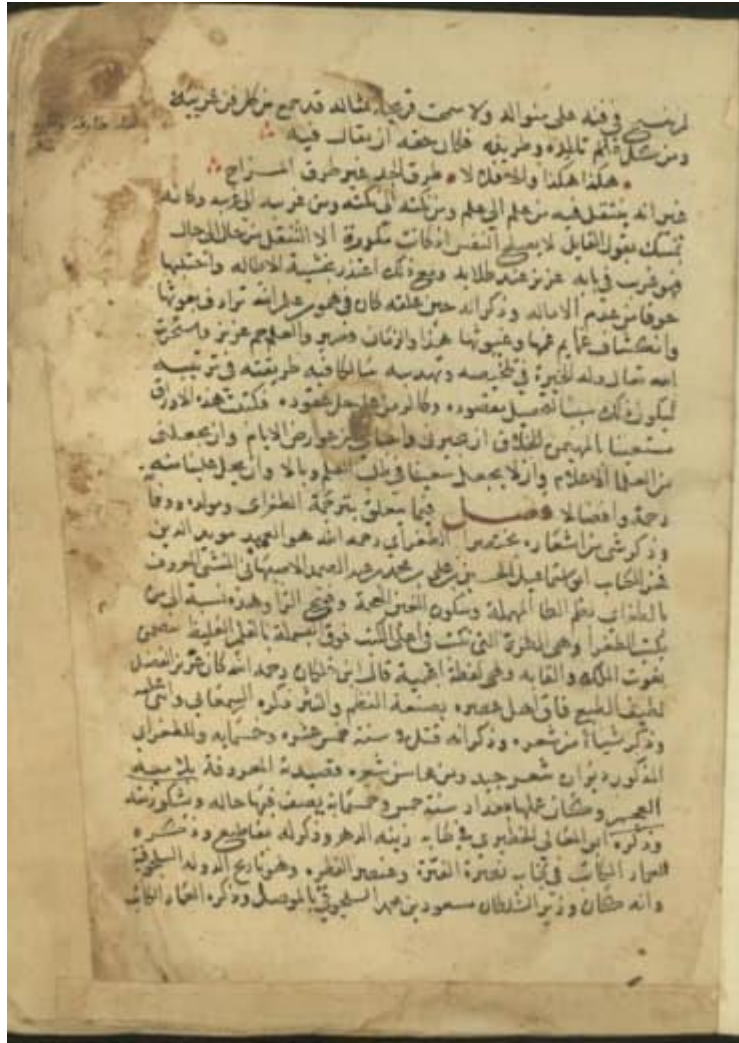 لم ينسج في فنه على منواله ولا سمحت قريحة بمثاله قد جمع من كل فن غريبه
ومن كل علم تليده وطريفه فكان حقه ان يقال فيه
هكذا هكذا والا فلا لا طرق الجد غير طرق المزاح
غير انه ينتقل فيه من علم الى علم ومن نكتة الى نكتة ومن غريبه الى غريبه وكانه
تمسك بقول القايل لا يصلح النفس اذ كانت مدبرة الا التنقل من حال الى حال
فهو غريب في بابه عزيز عند طلابه ومع ذلك اعتذر بخشية الاطاله واجتنبها
خوفا من عدم الاماله وذكر انه حين علقه كان في هموم علم الله ترادف بعوثها
وانكشاف غمايم غمها وغيوثها هذا والزمان والعلم جم عزيز واستخرت
الله تعالى وله الخيرة في تلخيصه وتهذيبه سالكا فيه طريقته في ترتيبه
ليكون ذلك سببا مقصوده وكالرمز على حل عقوده فكتبت هذه الاوراق
مستعينا بالمهيمن الخلاق ان عوارض الايام وان يجعلني
من العلما الاعلام وان لا يجعل سعينا في طلب العلم وبالا وان يجعل علينا منه
رحمة وافضالا فصل فيما يتعلق بترجمة الطغراي ومولده ووفا
وذكر شي من اشعاره مختصرا الطغراي رحمه الله هو العميد مويد الدين
فخر الكتاب ابو اسماعيل الحسين بن علي بن محمد بن عبد الصمد الاصبهاني المنشي المعروف
بالطغراي بضم الطا المهملة وسكون الغين المعجمة وفتح الرا وهذه نسبة الى من
يكتب الطغرا وهي الطرة التي تكتب في اعلى الكتب فوق البسملة بالقلم الغليظ تتضمن
نعوت الملك والقابه وهي لفظة اعجمية قال ابن خلكان رحمه الله كان غزير الفضل
لطيف الطبع فاق اهل عصره بصنعة النظم والنثر ذكره السمعاني واثنى عليه
وذكر شيا من شعره وذكر انه قتل في سنة خمس عشره وخمسمايه وللطغراي
المذكور ديوان شعر جيد ومن محاسن شعره قصيدته المعروفة بلامية
العجم وكان عملها ببغداد سنة خمس وخمسماية يصف فيها حاله ويشكو زمنه
وذكره ابو المعالي الحظيري في كتابه زينة الدهر وذكر له مقاطيع وذكره
العماد الكاتب في كتاب نصرة الفترة وعصرة الفطره وهو تاريخ الدولة السلجوقية
وانه كان وزير السلطان مسعود بن محمد السلجوقي بالموصل وذكره العماد الكاتب